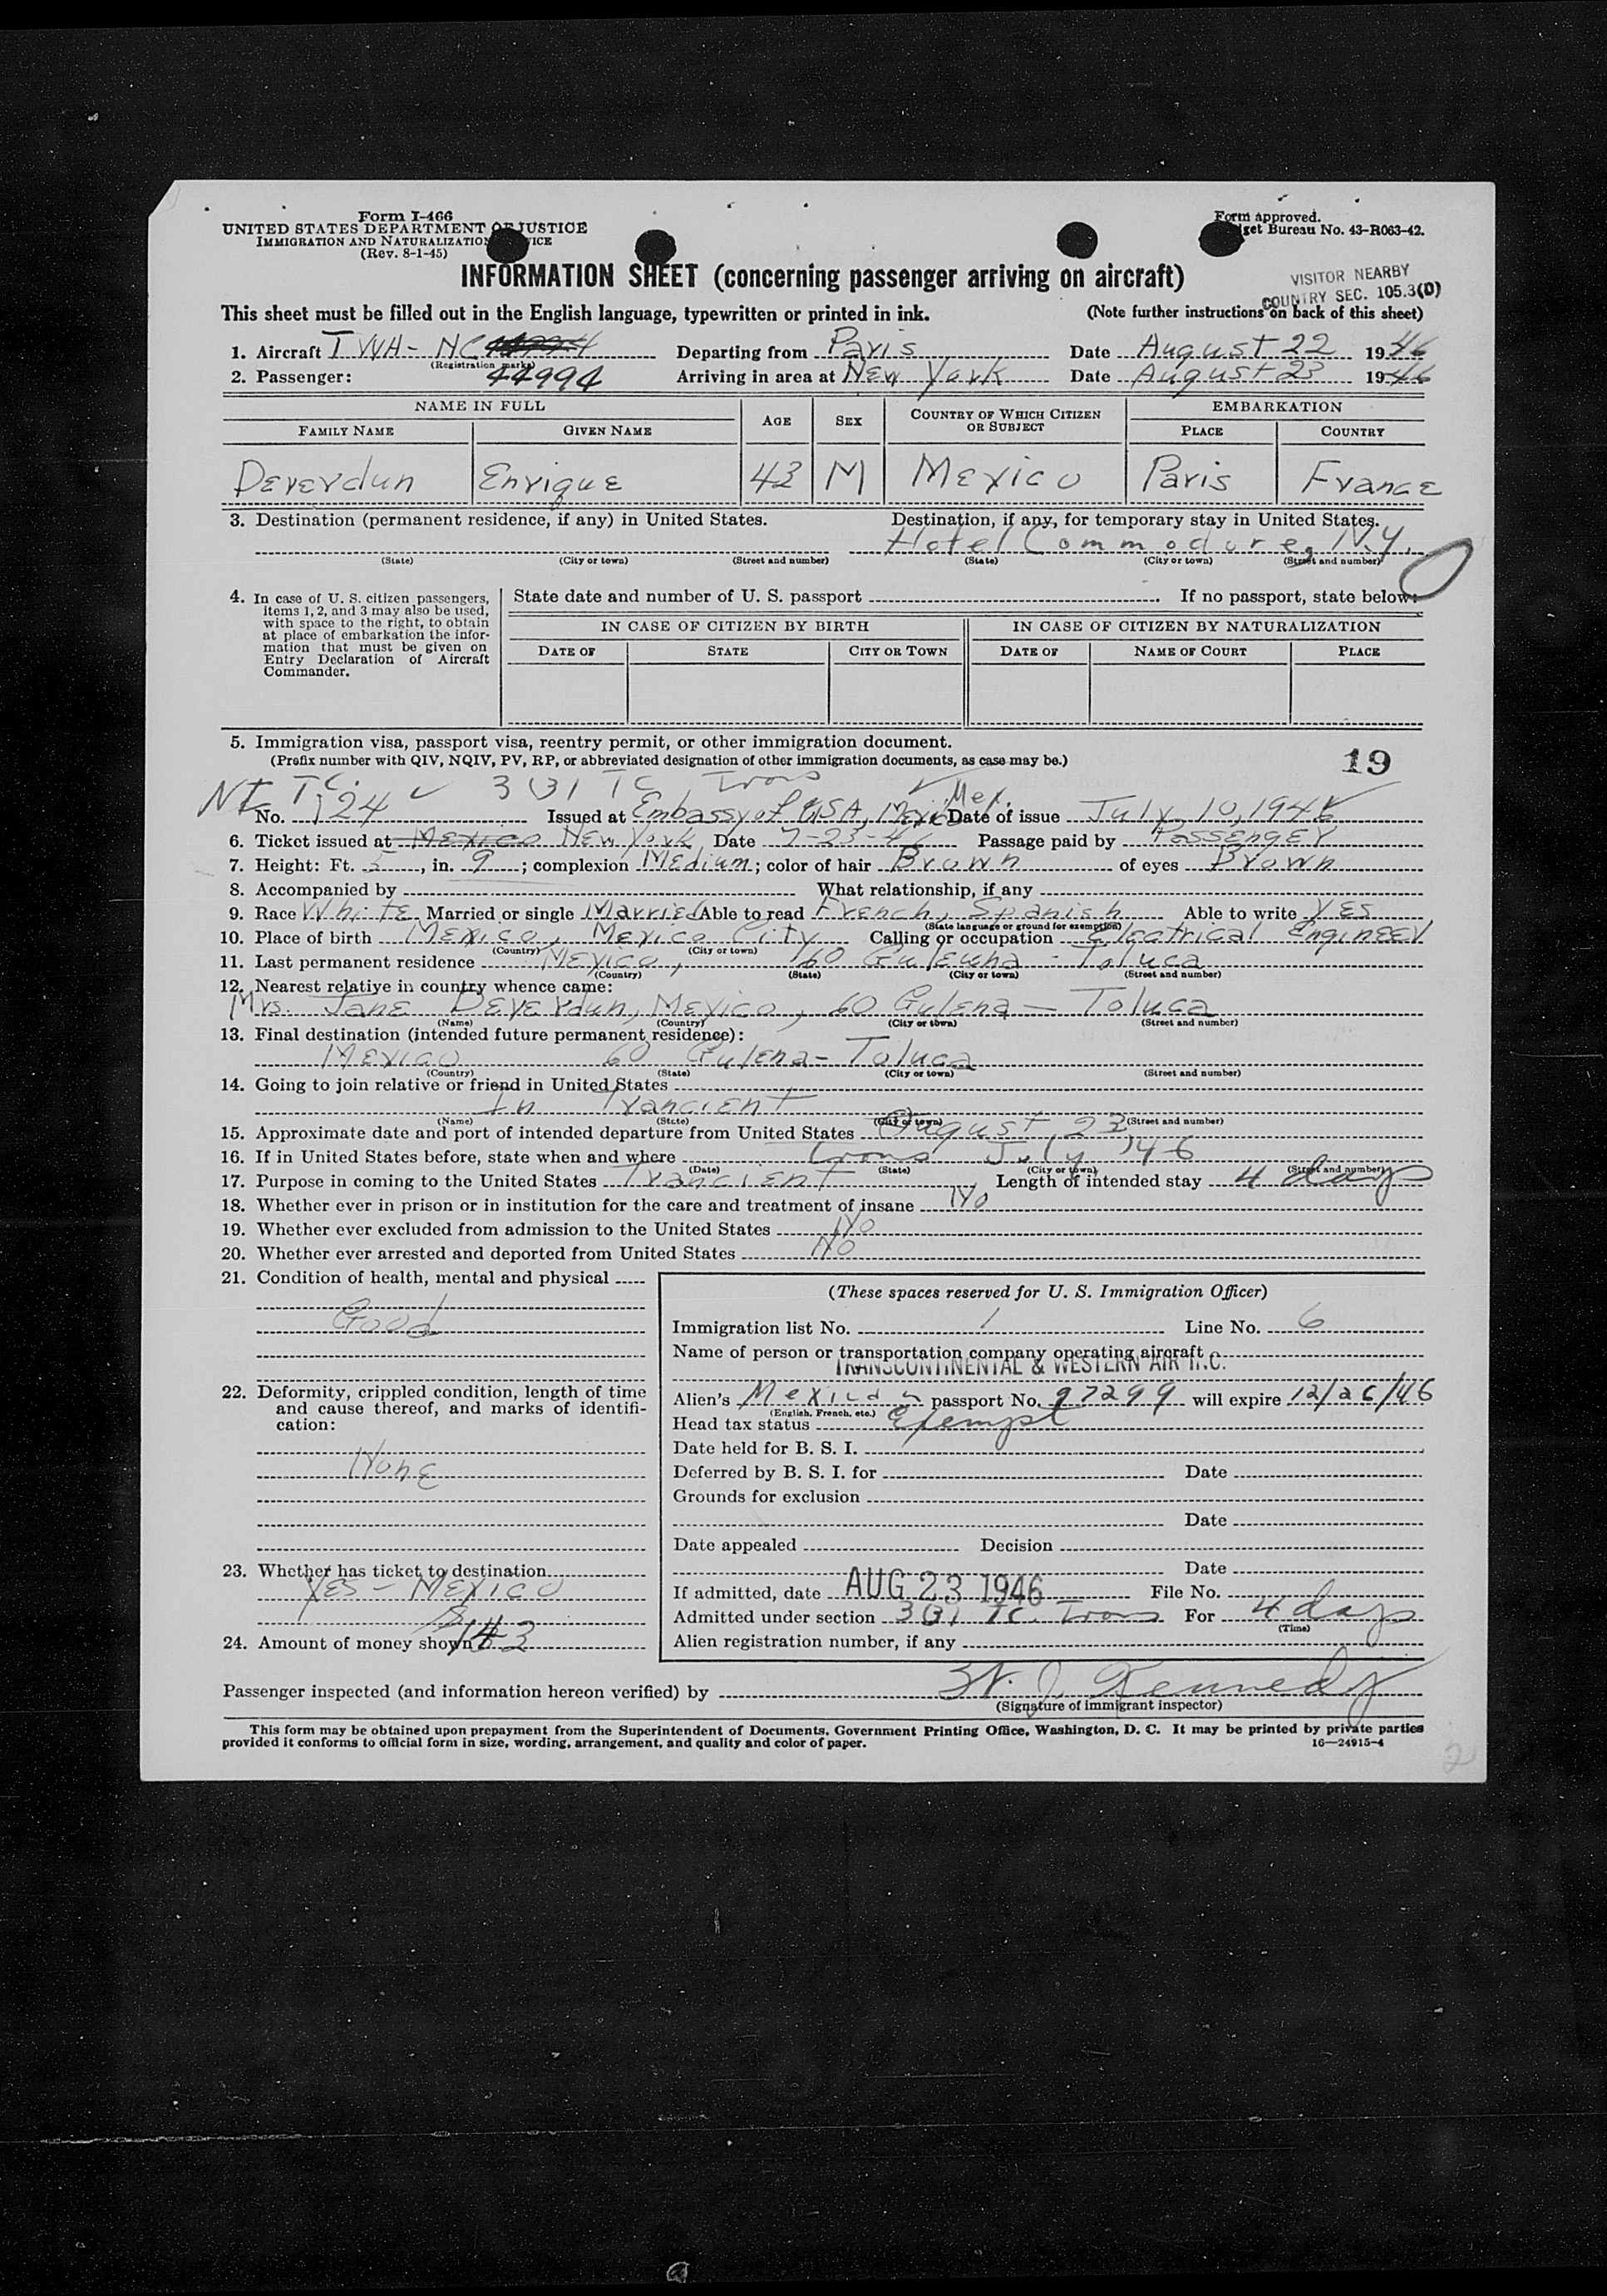 Form I-466
UNITED STATES DEPARTMENT OF JUSTICE
IMMIGRATION AND NATURALIZATION
(Rev. 8-1-45)
Form approved.
Bureau No. 43-R063-42.
INFORMATION SHEET (concerning passenger arriving on aircraft)
VISITOR NEARBY
COUNTRY SEC. 105.3(D)
This sheet must be filled out in the English language, typewritten or printed in ink. (Note further instructions on back of this sheet)
1. Aircraft TWA - NC Departing from Paris Date August 22 1946
(Registration marks)
2. Passenger: 44994 Arriving in area at New York Date August 23 1946
NAME IN FULL AGE SEX COUNTRY OF WHICH CITIZEN OR SUBJECT EMBARKATION
FAMILY NAME GIVEN NAME PLACE COUNTRY
Deverdun Enrique 43 M Mexico Paris France
3. Destination (permanent residence, if any) in United States. Destination, if any, for temporary stay in United States.
Hotel Commodore, N.Y.
(State) (City or town) (Street and number) (State) (City or town) (Street and number)
4. In case of U. S. citizen passengers, items 1, 2, and 3 may also be used, with space to the right, to obtain at place of embarkation the information that must be given on Entry Declaration of Aircraft Commander.
State date and number of U. S. passport If no passport, state below:
IN CASE OF CITIZEN BY BIRTH IN CASE OF CITIZEN BY NATURALIZATION
DATE OF STATE CITY OR TOWN DATE OF NAME OF COURT PLACE
5. Immigration visa, passport visa, reentry permit, or other immigration document.
(Prefix number with QIV, NQIV, PV, RP, or abbreviated designation of other immigration documents, as case may be.)
19
TC. 3(3) TC Trans
No. 124 Issued at Embassy of USA, Mexico Mex. Date of issue July 10, 1946
6. Ticket issued at Mexico New York Date 7-23-46 Passage paid by Passenger
7. Height: Ft. 5, in. 9; complexion Medium; color of hair Brown of eyes Brown
8. Accompanied by What relationship, if any
9. Race White Married or single Married Able to read French, Spanish Able to write Yes
(State language or ground for exemption)
10. Place of birth Mexico, Mexico City Calling or occupation Electrical Engineer
(Country) (City or town)
11. Last permanent residence Mexico, 60 - Toluca
(Country) (State) (City or town) (Street and number)
12. Nearest relative in country whence came:
Mrs. Jane Deverdun, Mexico, 60 Gulena - Toluca
(Name) (Country) (City or town) (Street and number)
13. Final destination (intended future permanent residence):
Mexico 60 Gulena - Toluca
(Country) (State) (City or town) (Street and number)
14. Going to join relative or friend in United States
In Trancient
(Name) (State) (City or town) (Street and number)
15. Approximate date and port of intended departure from United States August 23
16. If in United States before, state when and where Trans July '46
(Date) (State) (City or town) (Street and number)
17. Purpose in coming to the United States Trancient Length of intended stay 4 days
18. Whether ever in prison or in institution for the care and treatment of insane No
19. Whether ever excluded from admission to the United States No
20. Whether ever arrested and deported from United States No
21. Condition of health, mental and physical
Good
22. Deformity, crippled condition, length of time and cause thereof, and marks of identification:
None
23. Whether has ticket to destination
Yes - Mexico
24. Amount of money shown $143
(These spaces reserved for U. S. Immigration Officer)
Immigration list No. 1 Line No. 6
Name of person or transportation company operating aircraft
TRANSCONTINENTAL & WESTERN AIR INC.
Alien's Mexican passport No. 97299 will expire 12/26/46
(English, French, etc.)
Head tax status Exempt
Date held for B. S. I.
Deferred by B. S. I. for Date
Grounds for exclusion
Date
Date appealed Decision
Date
If admitted, date AUG 23 1946 File No.
Admitted under section 3(3) TC. Trans For 4 days
(Time)
Alien registration number, if any
Passenger inspected (and information hereon verified) by W. J. Kennedy
(Signature of immigrant inspector)
This form may be obtained upon prepayment from the Superintendent of Documents, Government Printing Office, Washington, D. C. It may be printed by private parties
provided it conforms to official form in size, wording, arrangement, and quality and color of paper. 16—24915-4
2